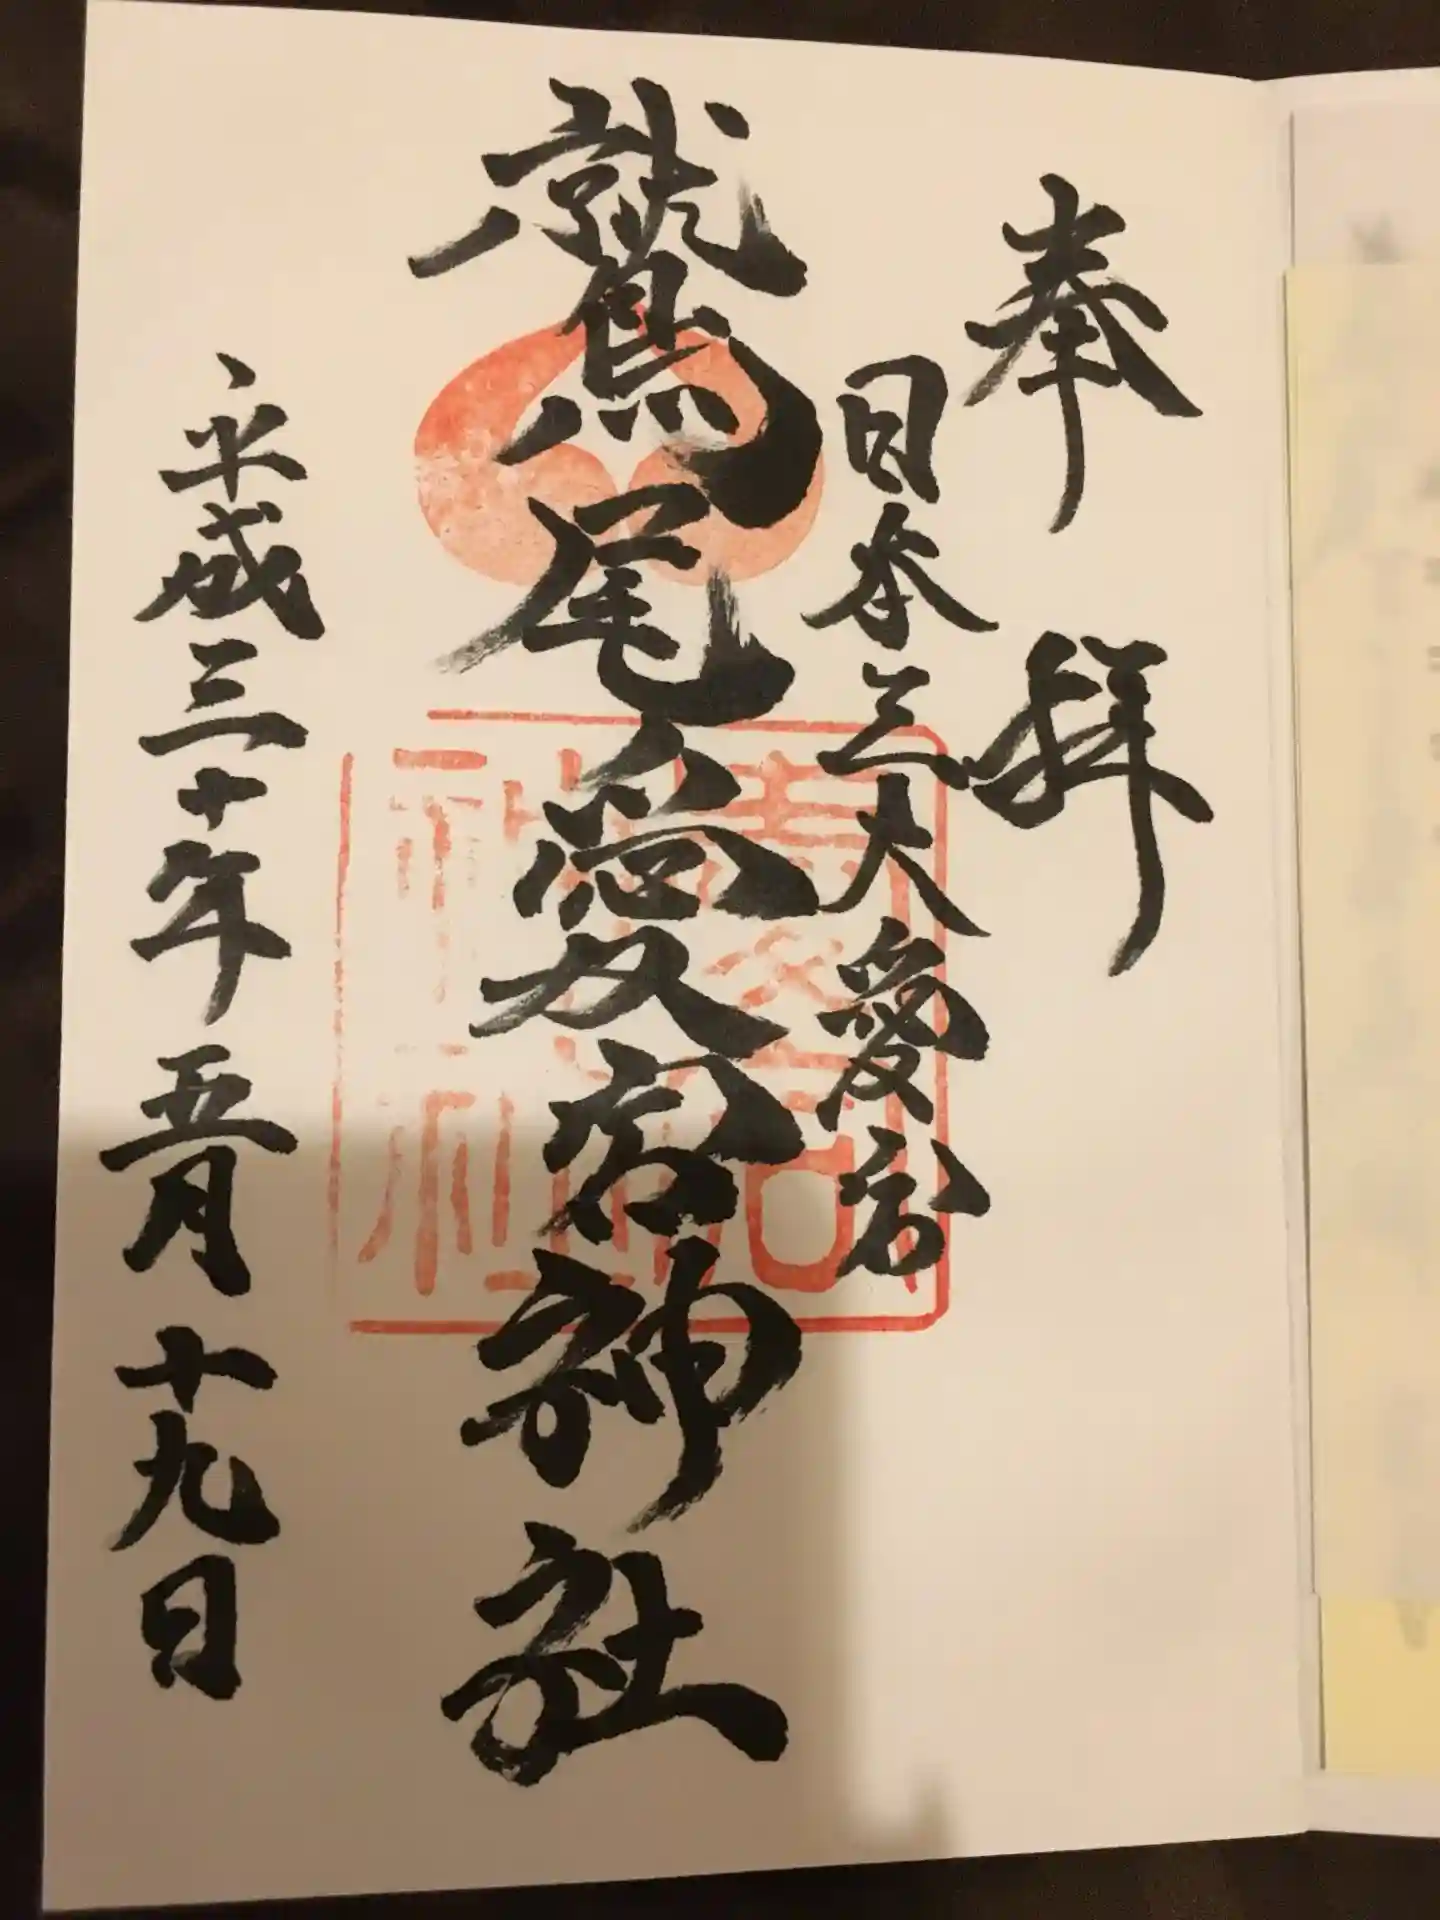 奉拝
日本三大愛宕
鷲尾愛宕神社
平成三十年五月十九日